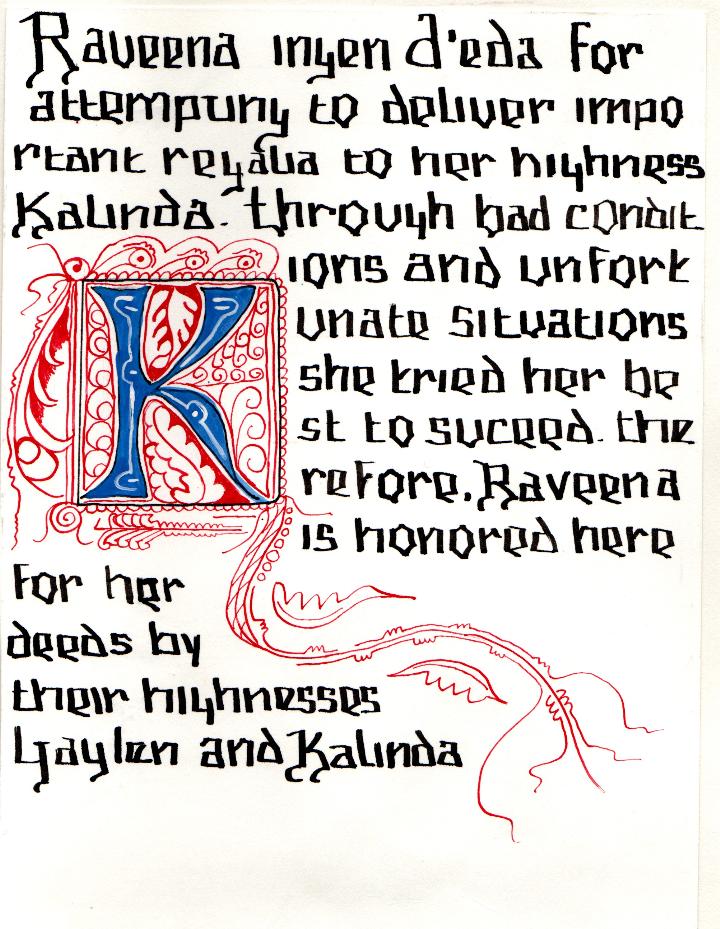 Raveena ingen d'eda for
attempting to deliver impo
rtant regalia to her highness
Kalinda. through bad condit
ions and unfort
unate situations
K
she tried her be
st to suceed. the
refore, Raveena
is honored here
for her
deeds by
their highnesses
Gaylen and Kalinda